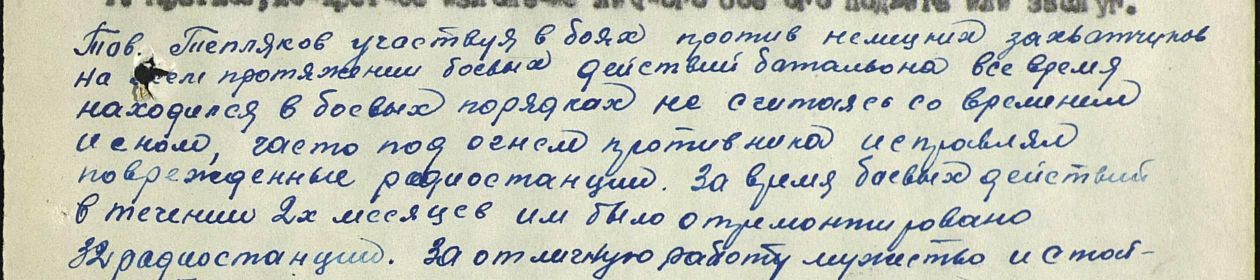 1. Краткое, конкретное изложение личного боевого подвига или заслуг.
Тов. Тепляков участвуя в боях против немецких захватчиков
на всем протяжении боевых действий батальона все время
находился в боевых порядках не считаясь со временем
и сном, часто под огнем противника исправлял
поврежденные радиостанции. За время боевых действий
в течении 2х месяцев им было отремонтировано
32 радиостанции. За отличную работу мужество и стой-